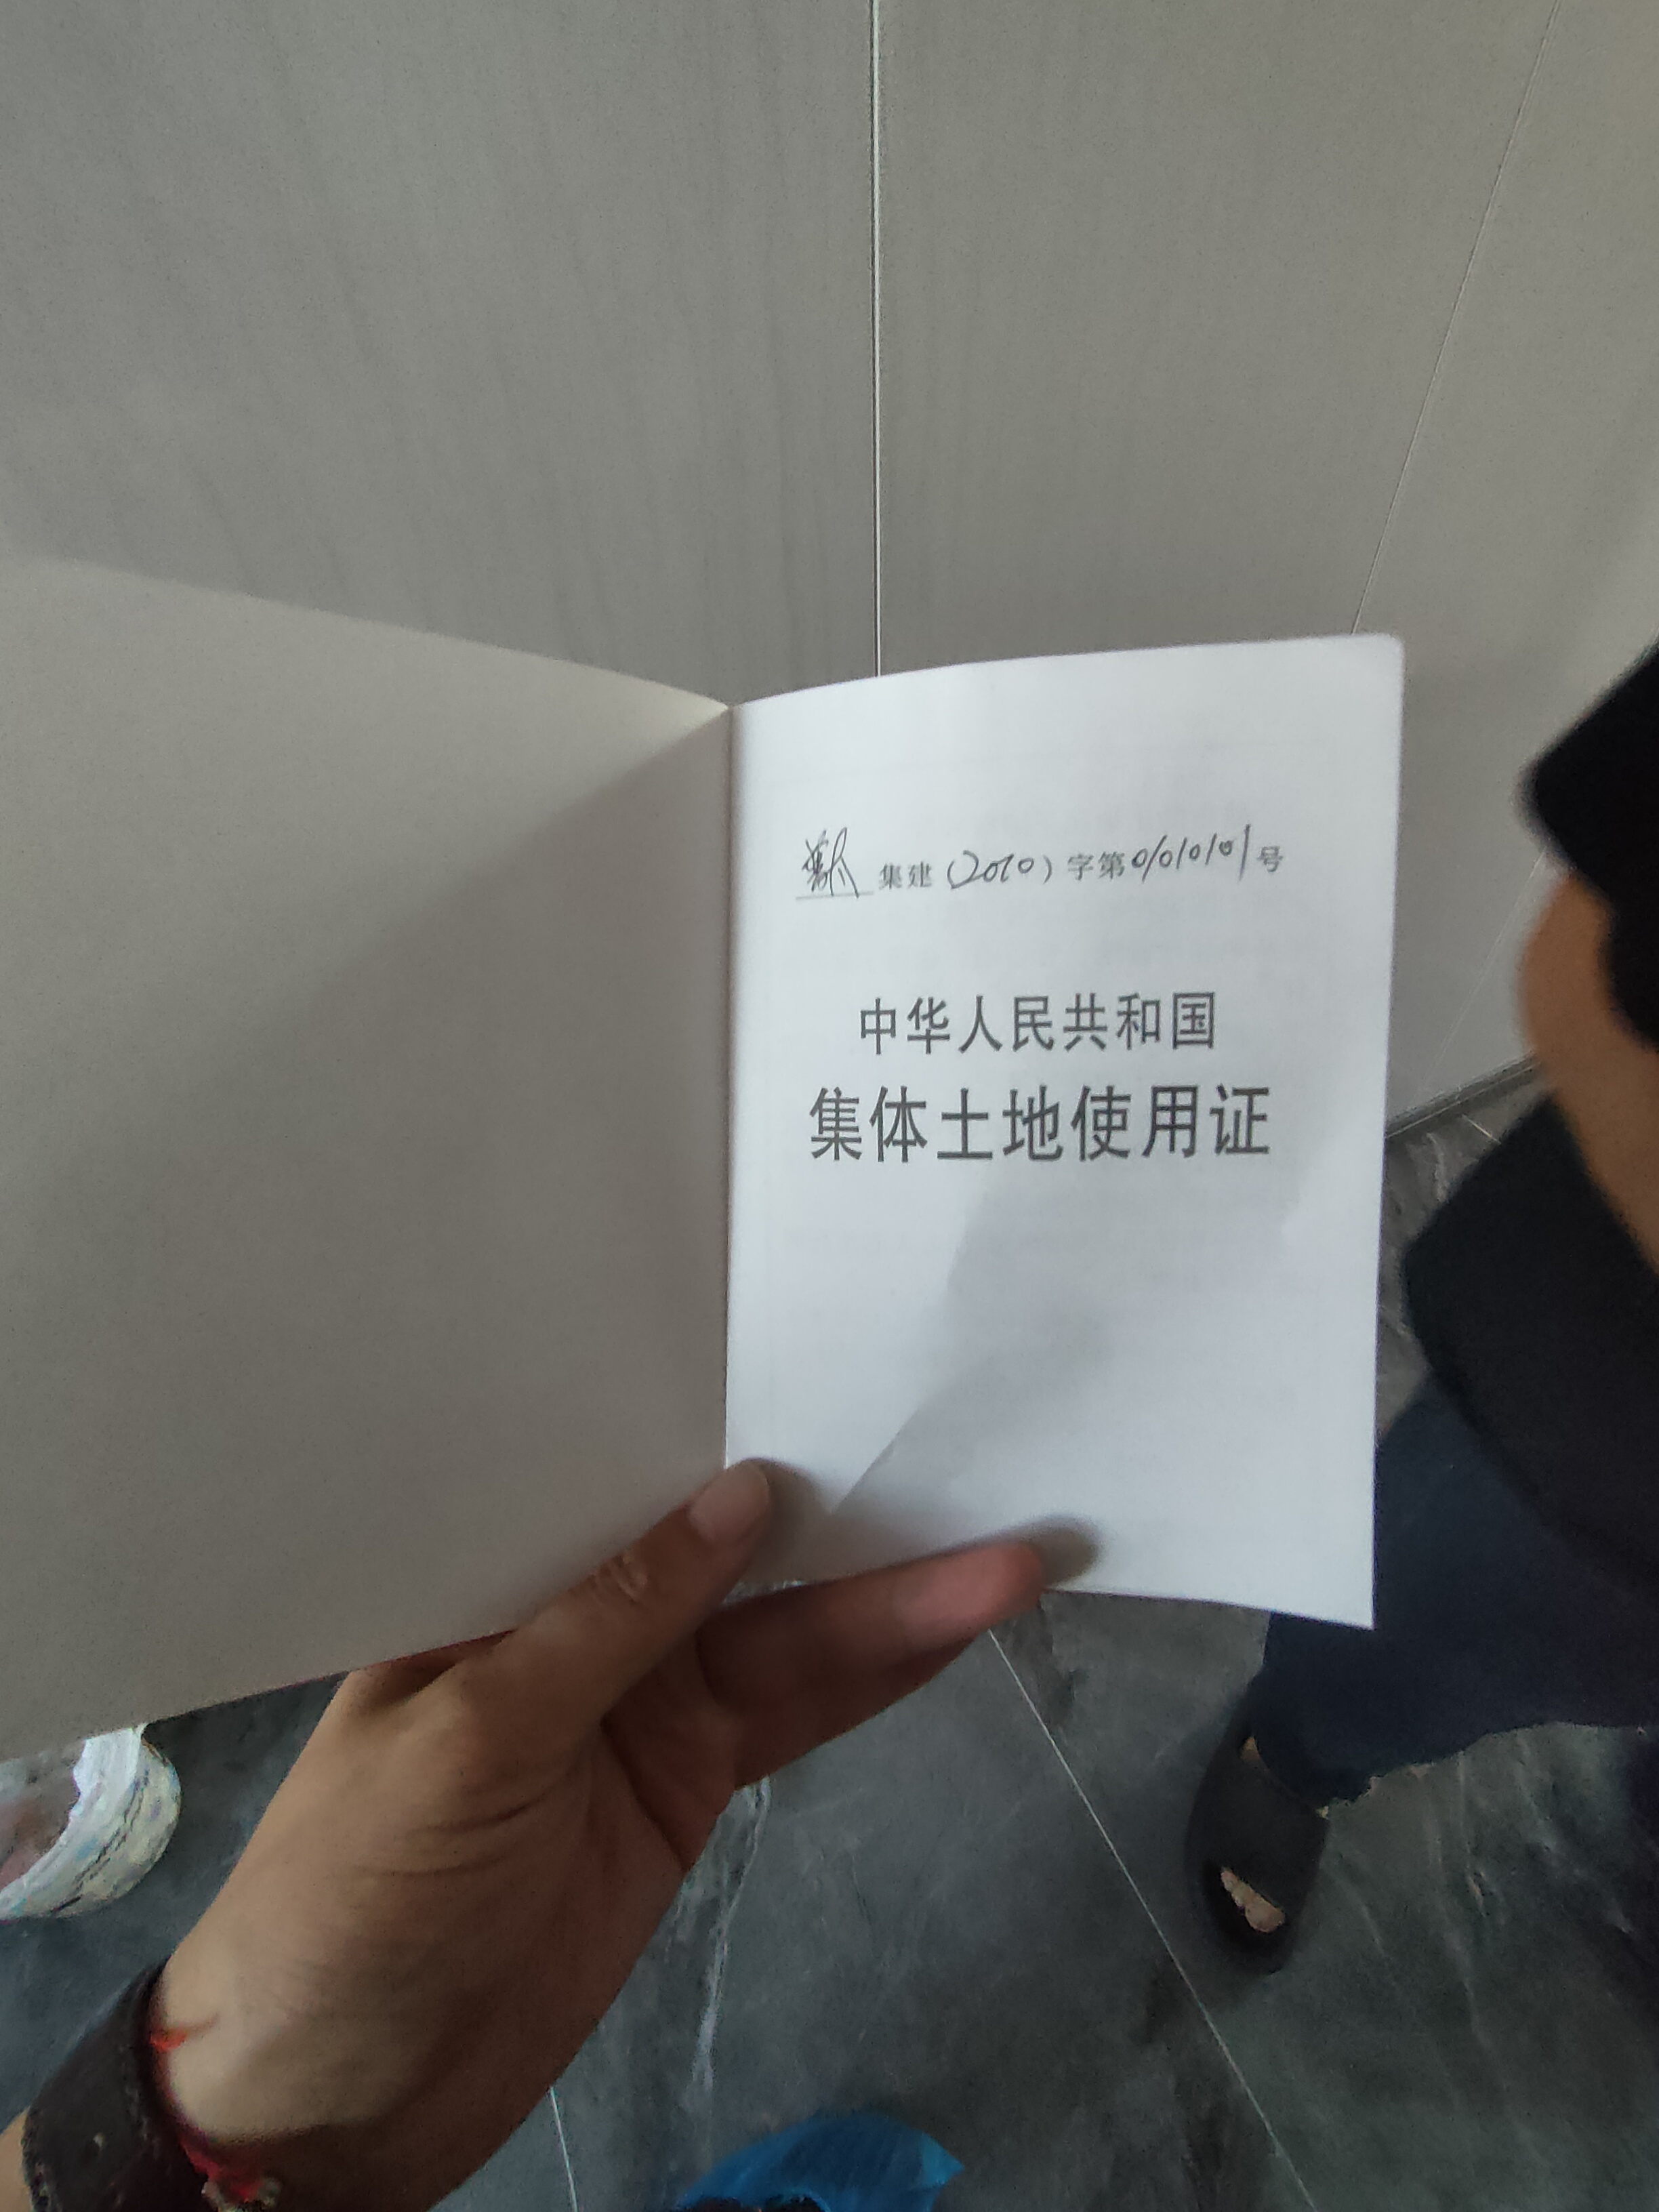 集建（2010）字第0/0/0/0/号
中华人民共和国
集体土地使用证